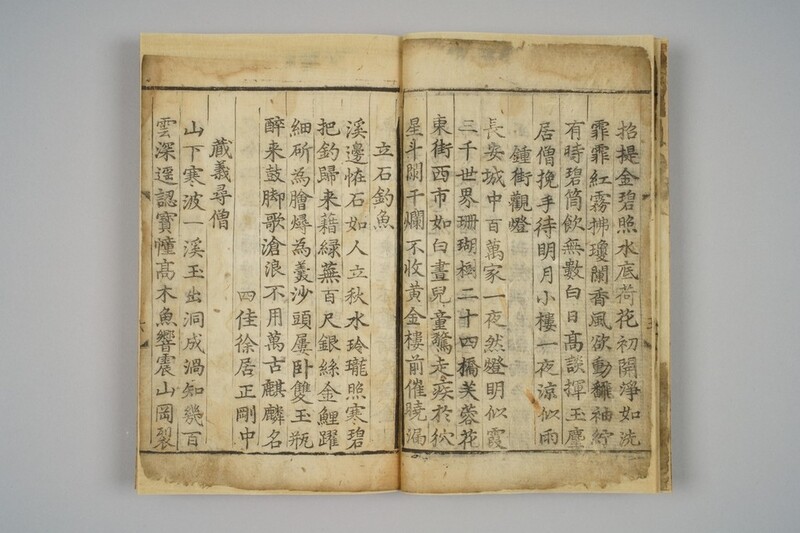 招提金碧照水底荷花初開淨如洗
霏霏紅霧拂瓊闌香風欲動翻袖紵
有時碧筒飮無數白日高談揮玉麈
居僧挽手待明月小樓一夜涼似雨
鍾街觀燈
長安城中百萬家一夜然燈明似霞
三千世界珊瑚樹二十四橋芙蓉花
東街西市如白晝兒童驚走疾於狖
星斗闌干爛不收黃金樓前催曉漏
立石釣魚
溪邊恠石如人立秋水玲瓏照寒碧
把釣歸来藉緑蕪百尺銀絲金鯉躍
細斫為膾燖為羹沙頭屢卧雙玉瓶
醉来鼓脚歌滄浪不用萬古麒麟名
四佳徐居正剛中
蔵義尋僧
山下寒波一溪玉出洞成渦知幾百
雲深遥認寳幢高木魚響震山岡裂